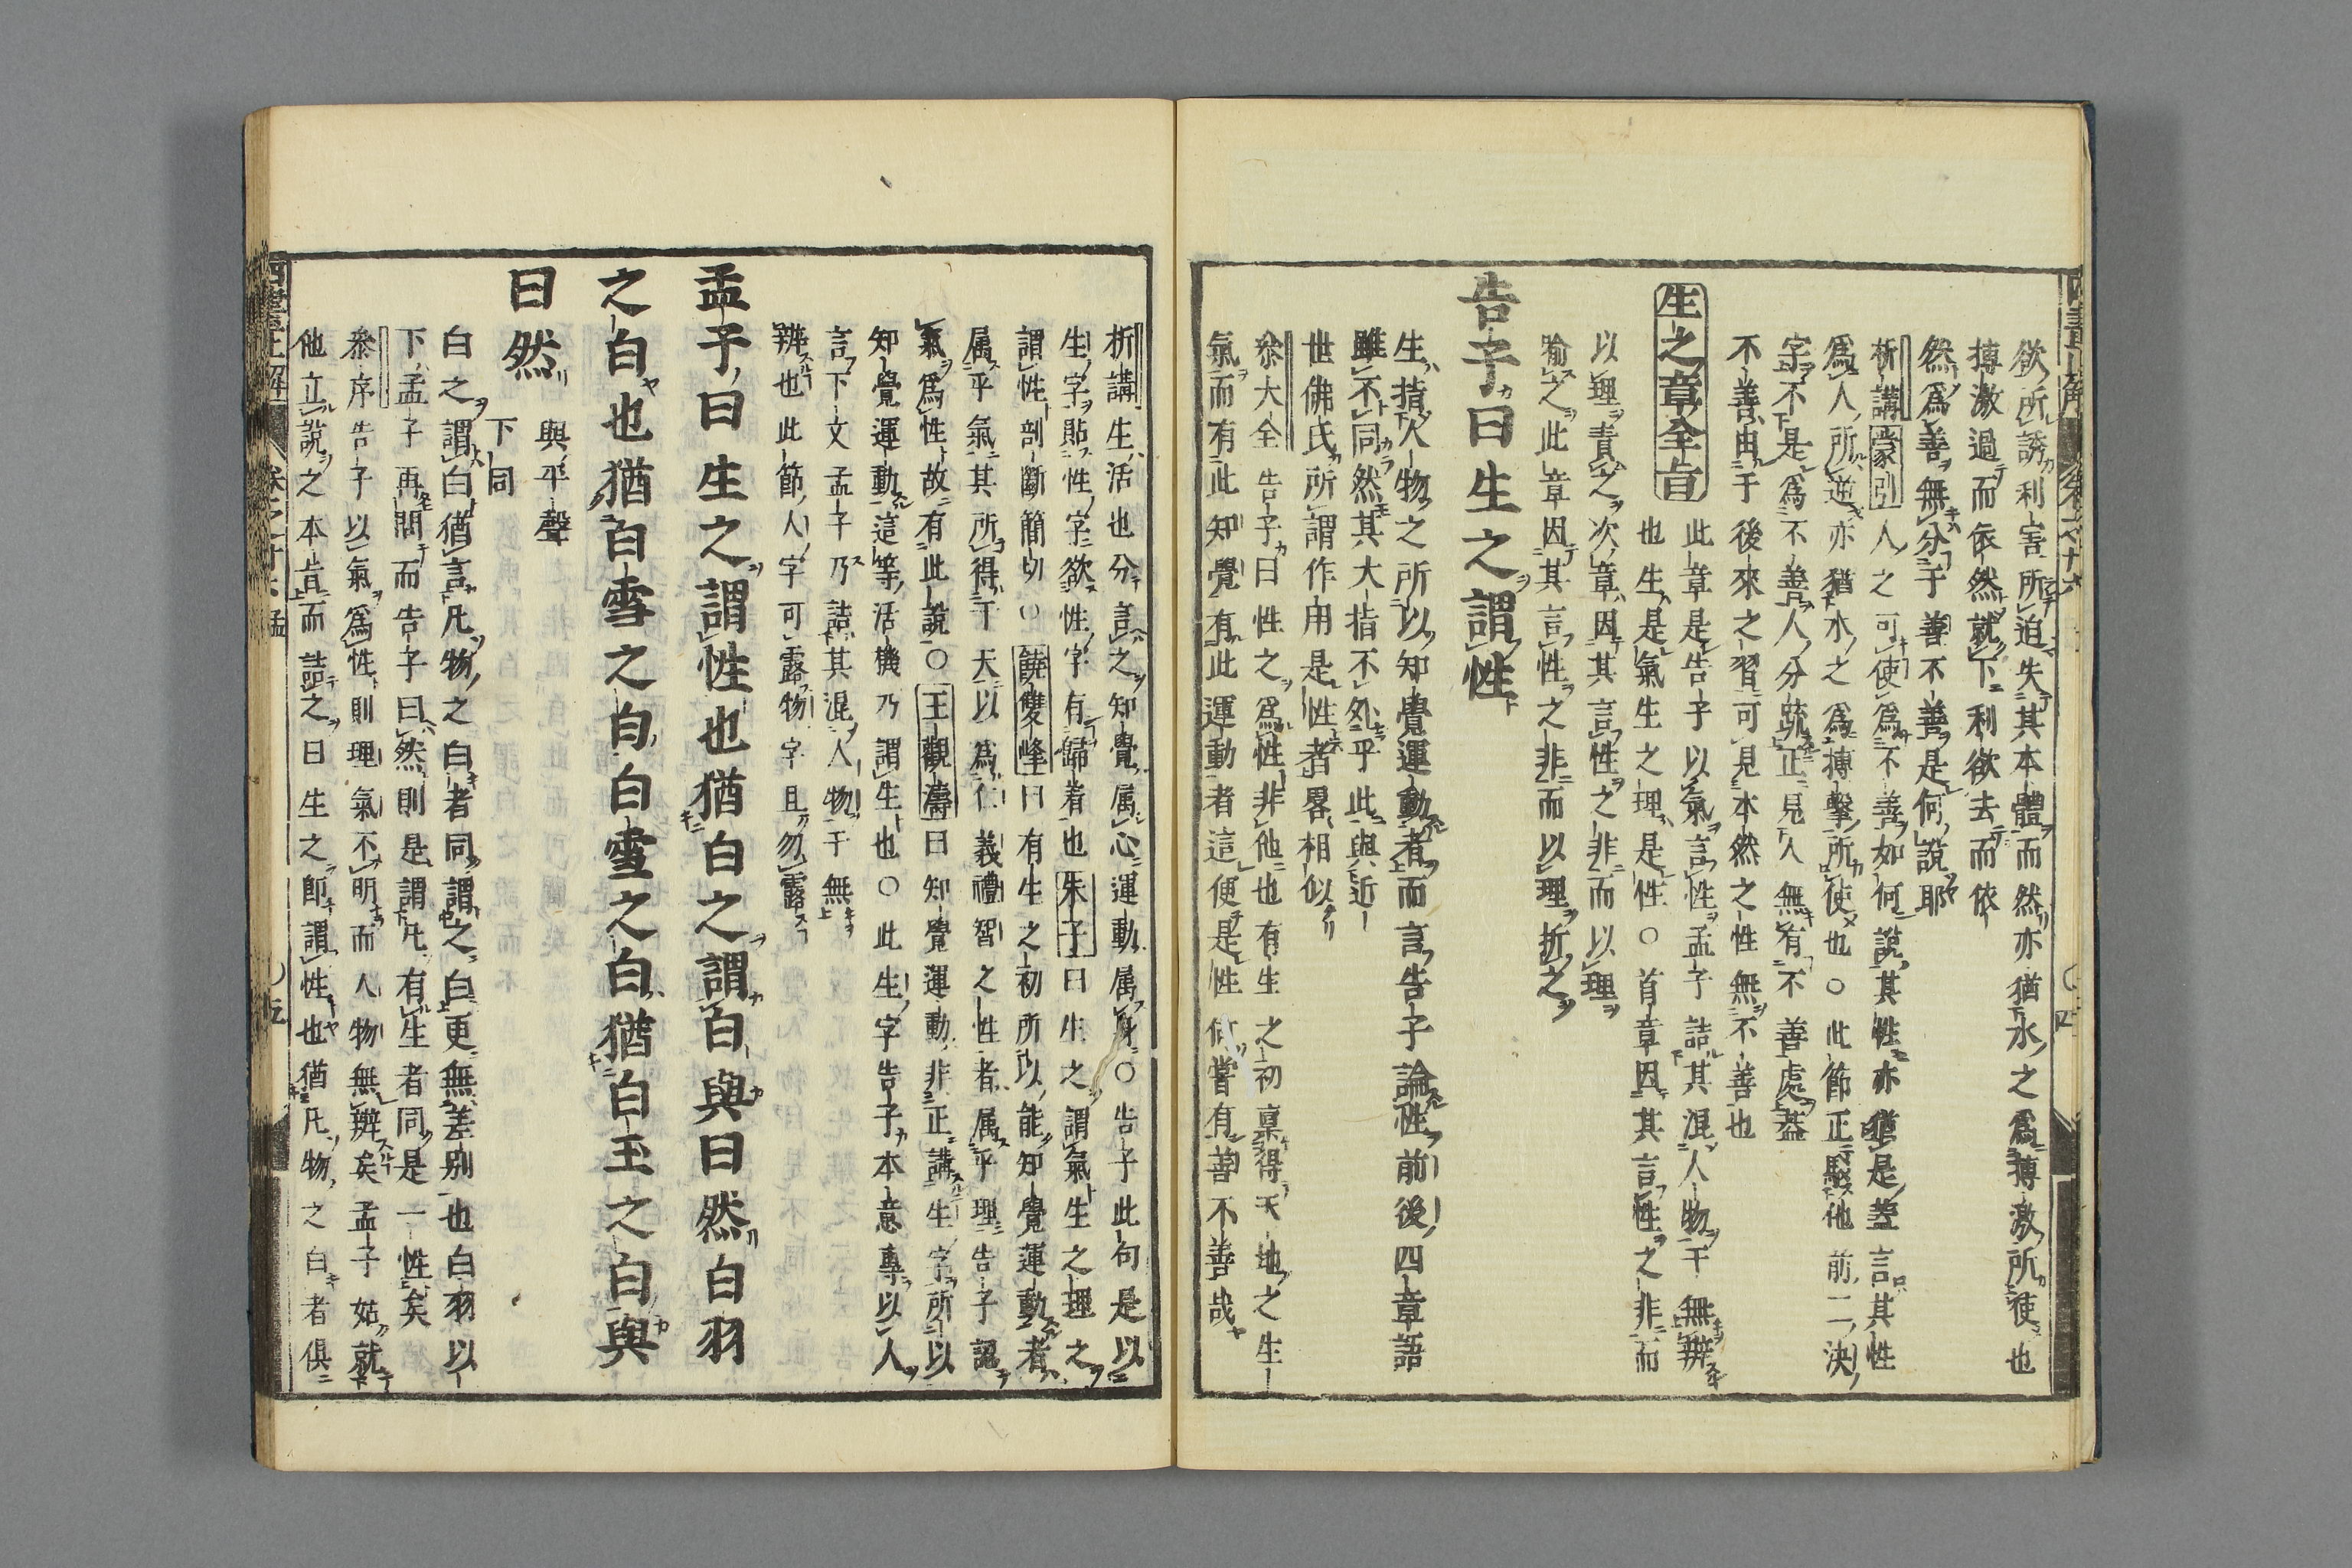 欲所誘利害所迫失其本體而然亦猶水之爲搏激所使也
搏激過而依然就下利欲去而依
然爲善無分于善不善是何説耶
析講蒙引人之可使爲不善如何説其性亦猶是盖言其性
爲人所逆亦猶水之爲搏擊所使也○此節正駁他前二決
字不是爲不善人分疏正見人無有不善處葢
不善由于後來之習可見本然之性無不善也
生之章全旨
此章是告子以氣言性孟子詰其混人物于無辨
也生是氣生之理是性○首章因其言性之非而
以理責之次章因其言性之非而以理
喻之此章因其言性之非而以理折之
告子曰生之謂性
生指人物之所以知覺運動者而言告子論性前後四章語
雖不同然其大指不外乎此與近
世佛氏所謂作用是性者畧相似
叅大全告子曰性之爲性非他也有生之初稟得天地之生
氣而有此知覺有此運動者這便是性何嘗有善不善哉
析講生活也分言之知覺属心運動属身○告子此句是以
生字貼性字欲性字有歸着也朱子曰生之謂氣生之理之
謂性剖斷簡切○饒雙峰曰有生之初所以能知覺運動者
属乎氣其所得于天以爲仁義禮智之性者属乎理告子認
氣爲性故有此説○王觀濤曰知覺運動非正講生字所以
知覺運動這等活機乃謂生也○此生字告子本意專以人
言下文孟子乃詰其混人物于無
辨也此節人字可露物字且勿露
孟子曰生之謂性也猶白之謂白與曰然白羽
之白也猶白雪之白白雪之白猶白玉之白與
曰然
與平聲
下同
白之謂白猶言凡物之白者同謂之白更無差别也白羽以
下孟子再問而告子曰然則是謂凡有生者同是一性矣
叅序告子以氣爲性則理氣不明而人物無辨矣孟子姑就
他立説之本旨而詰之曰生之即謂性也猶凡物之白者俱